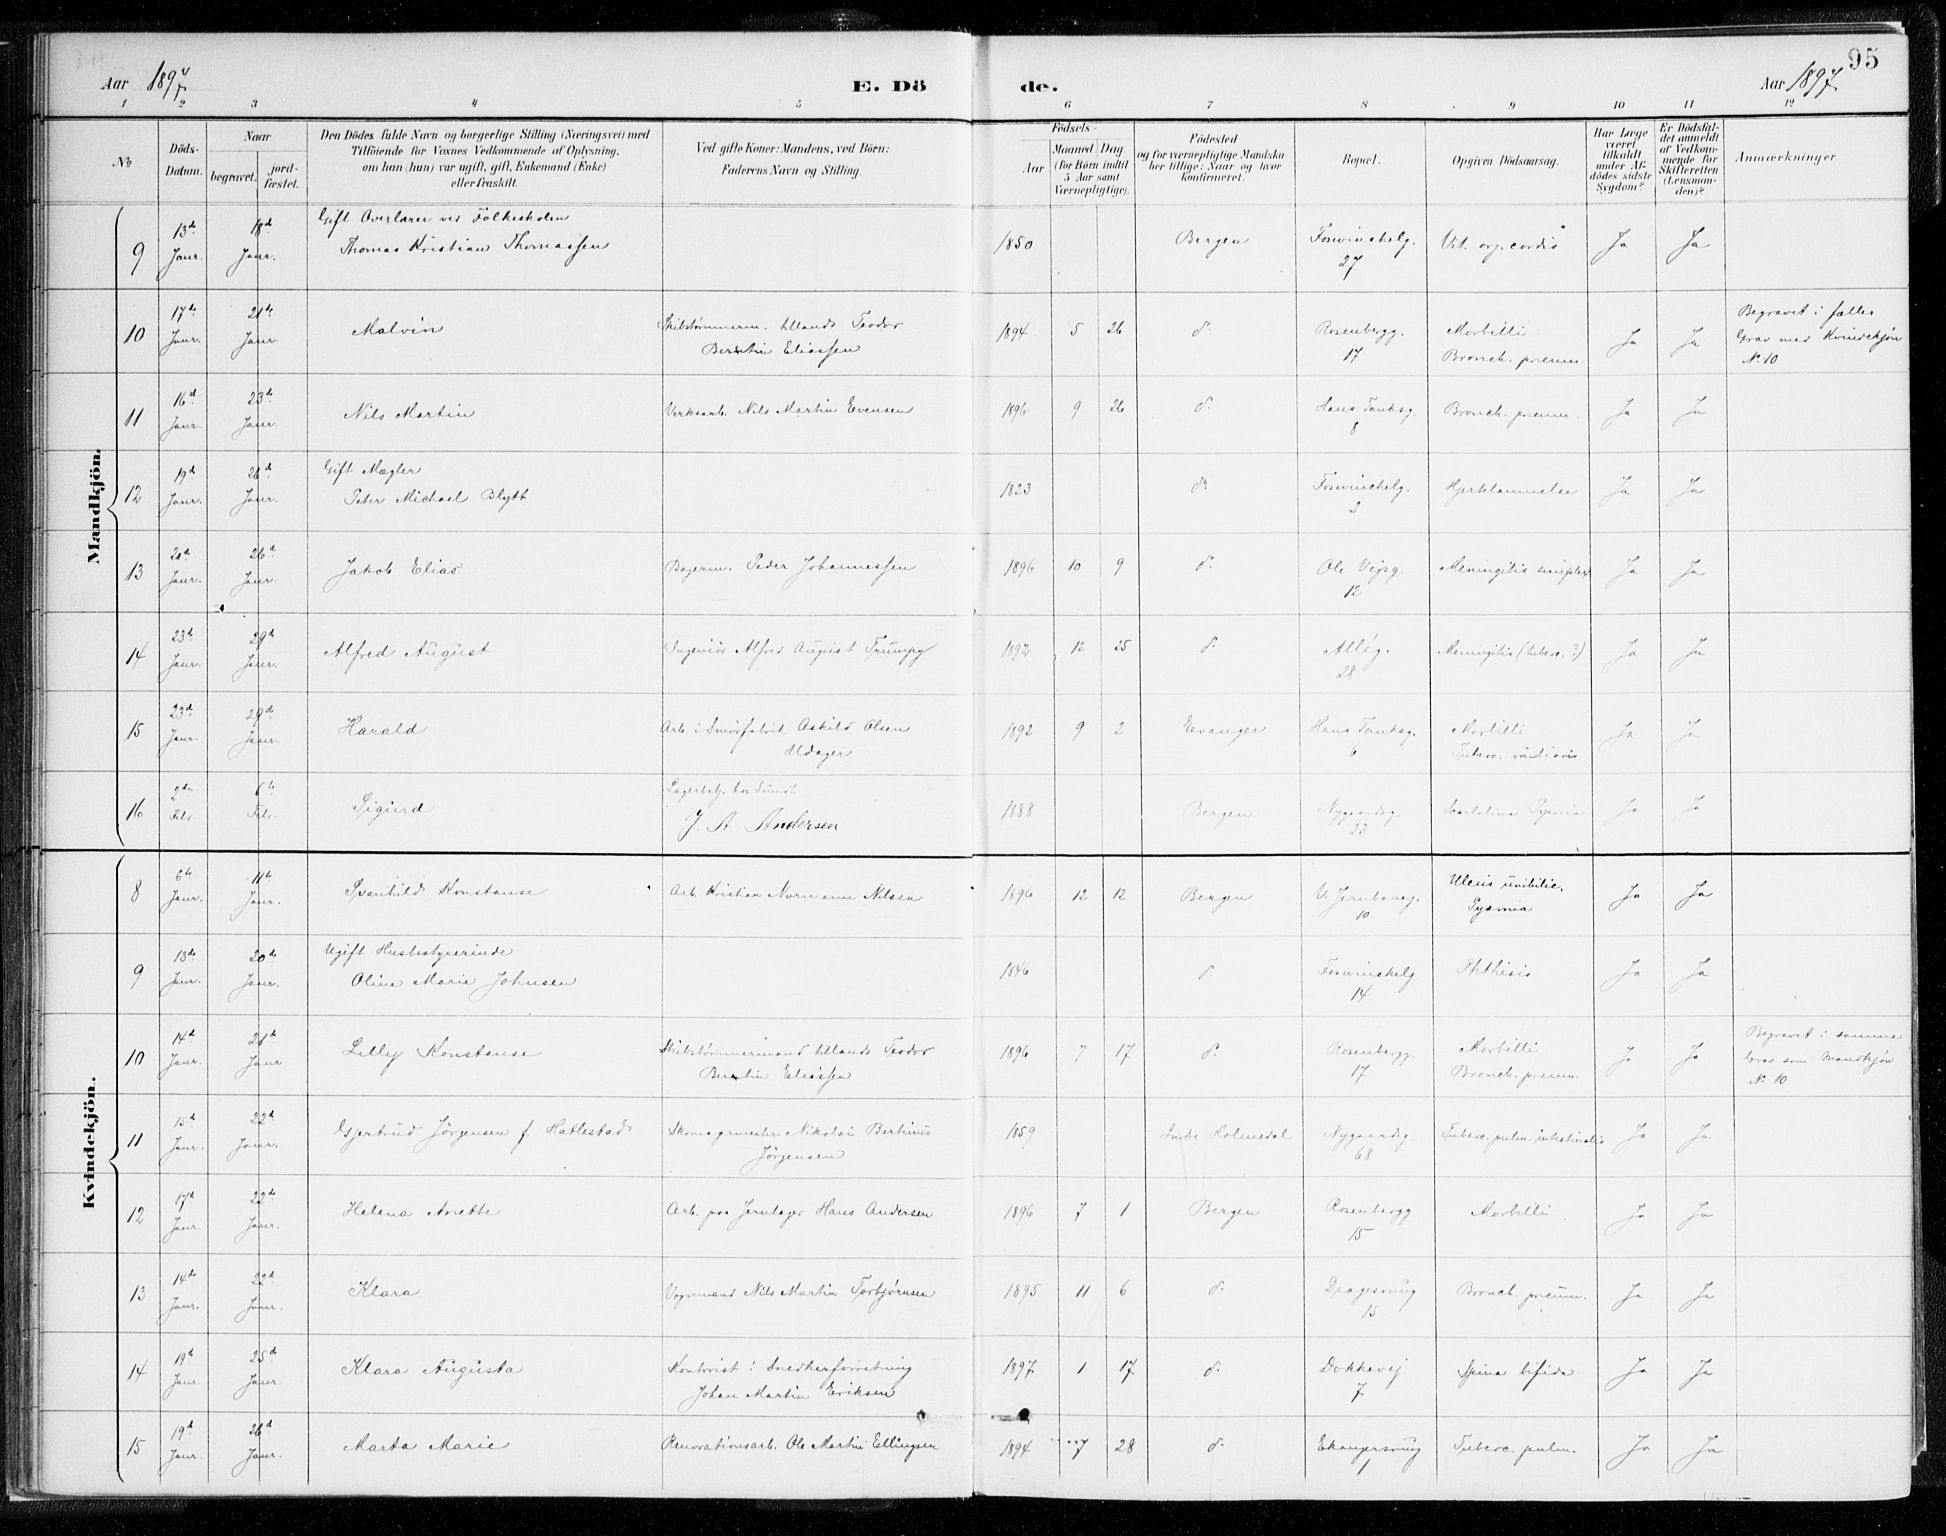 95
Aar 1897. E. Dö de. Aar 1897.
1 2 3 4 5 6 7 8 9 10 11 12
No
Döds-Datum.
Naar
begravet. jord-fæstet.
Den Dödes fulde Navn og borgerlige Stilling (Næringsvei) med
Tilföiende for Voxnes Vedkommende af Oplysning,
om han (hun) var ugift, gift, Enkemand (Enke)
eller fraskilt.
Ved gifte Koner: Mandens, ved Börn:
Faderens Navn og Stilling.
Födsels-
Aar Maaned Dag
(for Börn indtil
5 Aar samt
Værnepligtige).
Födested
og for værnepligtige Mandska-
ber tillige: Naar og hvor
konfirmeret.
Bopæl.
Opgiven Dödsaarsag.
Har Læge
været
tilkaldt
under Af-
dödes sidste
Sygdom?
Er Dödsfal-
det anmeldt
af Vedkom-
mende for
Skifteretten
(Lensman-
den)?
Anmærkninger.
Mandkjön.
9 13de Janr. 18de Janr. Gift Overlærer ved Folkeskolen
Thomas Kristian Thomassen 1850 Bergen Foswinckelg. 27 Vit. org. cordis Ja Ja
10 17de Janr. 21de Janr. Malvin Skibstømmerm. Teodor
Berntin Eliassen 1894 5 26 d. Rosenbergg. 17 Morbilli
Bronch. pneum. Ja Ja Begravet i fælles
Grav med Kvindekjøn
No. 10
11 16d Janr. 23de Janr. Nils Martin Verksarb. Nils Martin Evensen 1896 9 26 d. Hans Tanksg. 8 Bronch. pneum. Ja Ja
12 19d Janr. 26d Janr. Gift Mægler
Peter Michael Blytt 1823 do Foswinckelg. 2 Hjertelammelse Ja Ja
13 20d Janr. 26d Janr. Jakob Elias Bagerm. Peder Johannessen 1896 10 9 d. Ole Vigsg. 12 Meningitis simplex Ja Ja
14 23de Janr. 29d Janr. Alfred August Ingeniör Alfred August Trumpy 1892 12 25 d. Allég. 28 Meningitis (tuberc.?) Ja Ja
15 23d Janr. 29de Janr. Harald Arb. i Smörfabrik Askild Olsen
Udager 1892 9 2 Evanger Hans Tanksg. 6 Morbilli
Tuberc. Ja Ja
16 2den Febr. 6te Febr. Sigurd Lagerbetj. hos Sundt
J. A. Andersen 1888 Bergen Nygaardsg. 23 Scarlatina Pyæmia Ja Ja
Kvindekjön.
8 6te Janr. 11te Janr. Svanhild Konstanse Arb. Kristian Normann Nilsen 1896 12 12 Bergen V. Jernbaneg. 10 Ulcus umbilic.
Pyæmia Ja Ja
9 13de Janr. 20de Janr. Ugift Husbestyrerinde
Oline Marie Johnsen 1846 d. Foswinckelg. 14 Phthisis Ja Ja
10 14d Janr. 21d Janr Lilly Konstanse Skibstømmermand Teodor
Berntin Eliassen 1896 7 17 d. Rosenbergg. 17 Morbilli
Bronch. pneum. Ja Ja Begravet i samme
Grav som Mandkjøn
No. 10
11 15d Janr. 22d Janr. Gjertrud Jörgensen f. Hatlestad Skomagermester Nikolai Bertinius
Jörgensen 1859 Indre Holmedal Nygaardsg. 68 Tuberc. pulm. intestinalis Ja Ja
12 17d Janr. 22de Janr. Helena Anette Arb. paa Jernlager Hans Andersen 1896 7 1 Bergen Rosenbergg. 15 Morbilli Ja Ja
13 14de Janr. 22d Janr. Klara Vognmand Nils Martin Torbjörnsen 1895 11 6 d. Dragesmug 15 Bronch. pneum. Ja Ja
14 19d Janr. 25d Janr. Klara Augusta Kontorist i Snedkerforretning
Johan Martin Eriksen 1897 1 17 d. Dokkevej 7 Spina bifida Ja Ja
15 19d Janr. 26d Janr. Marta Marie Renovationsarb. Ole Martin Ellingsen 1894 7 28 d. Ekangersmug 1 Tuberc. pulm. Ja Ja